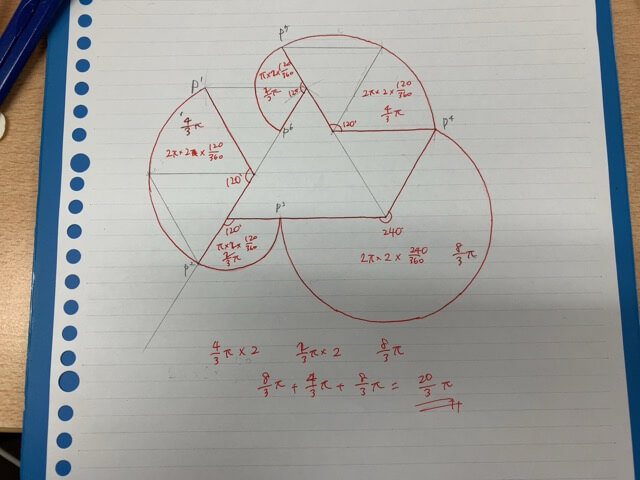 P⁵
π×2×120/360
2/3π
120°
2π×2×120/360
4/3π
120°
P⁴
P⁶
P¹
4/3π
2π×2×120/360
120°
P³
120°
π×2×120/360
2/3π
P²
240°
2π×2×240/360
8/3π
4/3π×2 2/3π×2 8/3π
8/3π + 4/3π + 8/3π = 20/3π